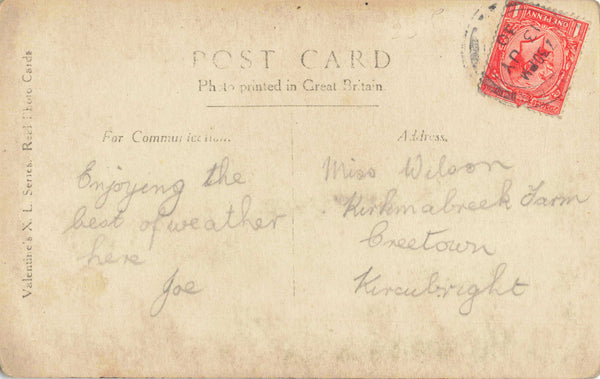 POST CARD
Photo printed in Great Britain.
For Communication.
Address.
Enjoying the
best of weather
here
Joe
Miss Wilson
Kirkmabreek Farm
Creetown
Kircubright
Valentine's X. L. Series. Real Photo Cards
ONE PENNY